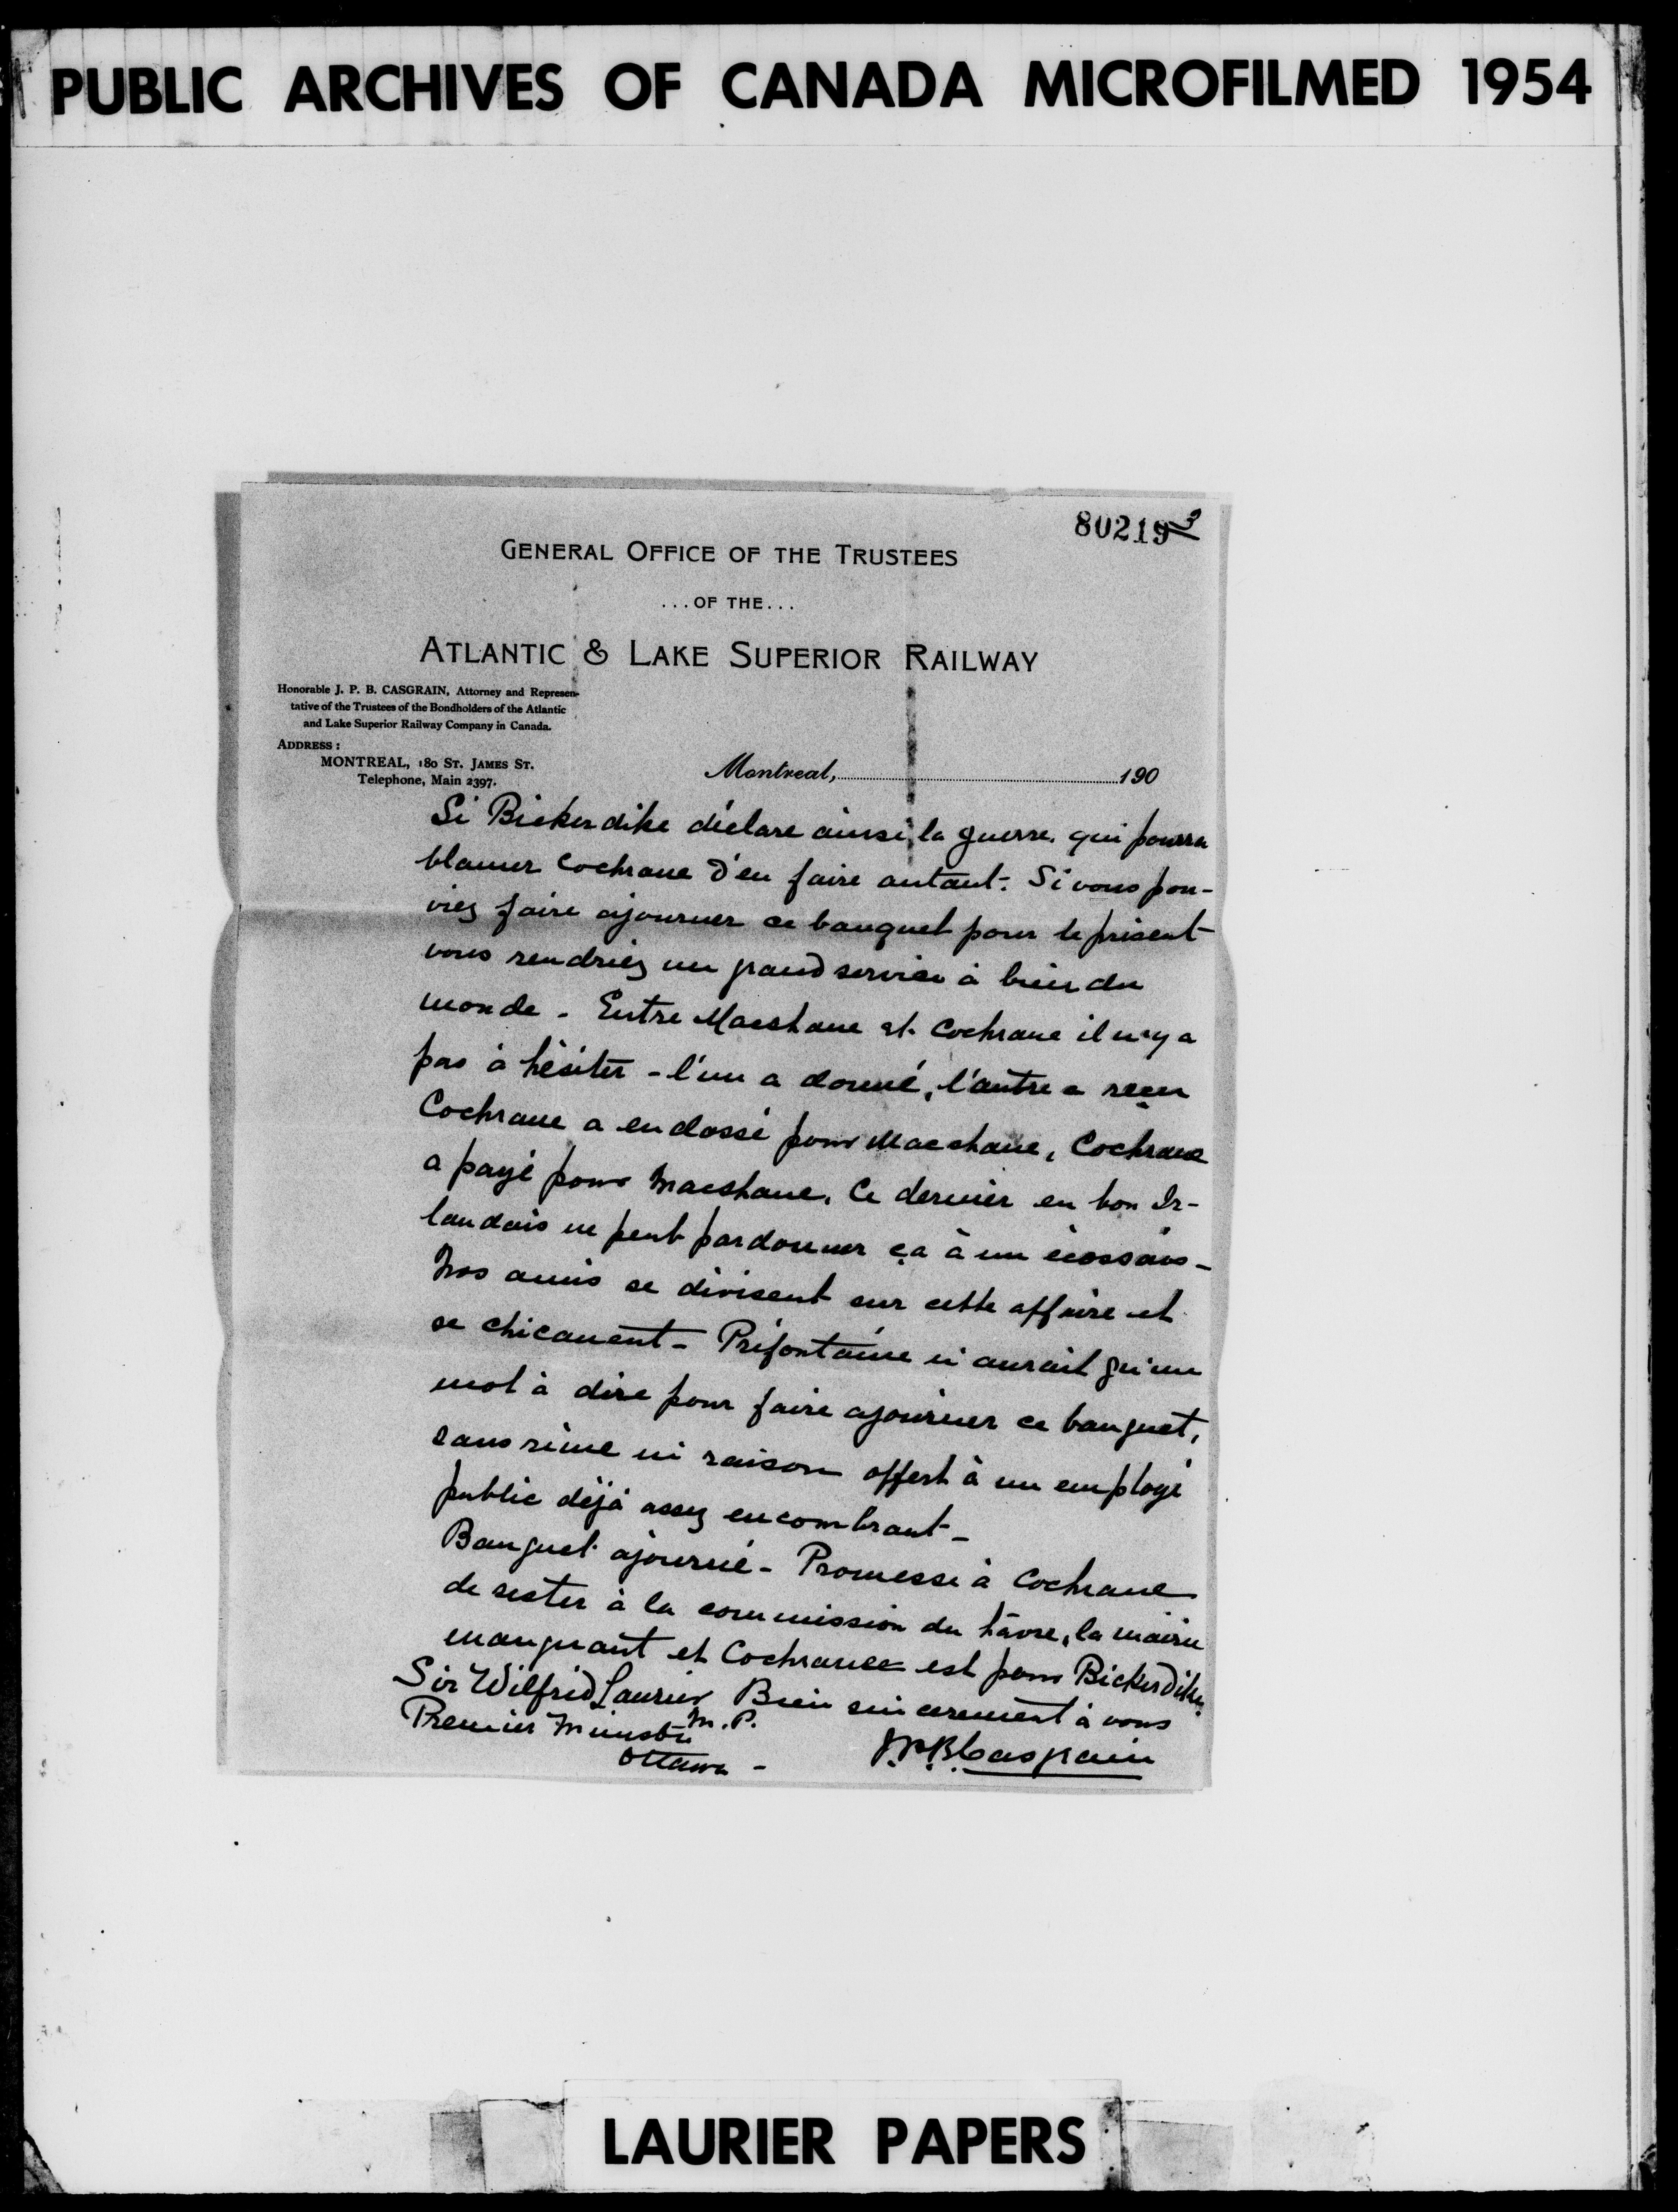 PUBLIC ARCHIVES OF CANADA MICROFILMED 1954
80219 3
GENERAL OFFICE OF THE TRUSTEES
...OF THE...
ATLANTIC & LAKE SUPERIOR RAILWAY
Honorable J. P. B. CASGRAIN, Attorney and Represen-
tative of the Trustees of the Bondholders of the Atlantic
and Lake Superior Railway Company in Canada.
ADDRESS:
MONTREAL, 180 ST. JAMES ST.
Telephone, Main 2397.
Montreal, 190
Si Bickerdike déclare ainsi la guerre, qui pourra
blamer Cochrane d'en faire autant. Si vous pou-
viez faire ajourner ce banquet pour le présent
vous rendriez un grand service à bien du
monde - Entre Macshane et Cochrane il n'y a
pas à hésiter - l'un a donné, l'autre a reçu
Cochrane a endossé pour Macshane, Cochrane
a payé pour Macshane. Ce dernier en bon Ir-
landais ne peut pardonner ça à un écossais -
Nos amis se divisent sur cette affaire et
se chicanent - Préfontaine n'aurait qu'un
mot à dire pour faire ajourner ce banquet,
sans rime ni raison offert à un employé
public déjà assez encombrant -
Banquet ajourné - Promesse à Cochrane
de rester à la commission du hâvre, la mairie
manquant et Cochrane est pour Bickerdike
Sir Wilfrid Laurier Bien sincerement à vous
M.P.
Premier Ministre
Ottawa - J.P.B. Casgrain
LAURIER PAPERS